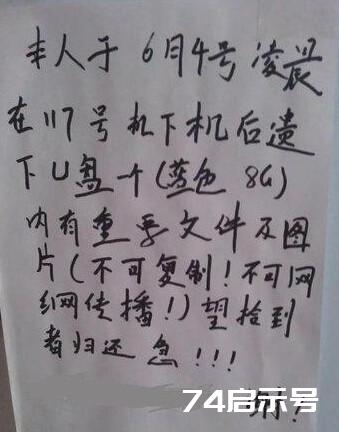 本人于6月4号凌晨
在117号机下机后遗
下U盘一个(蓝色 8G)
内有重要文件及图
片(不可复制!不可网
络网传播!)望拾到
者归还 急!!!
谢!
74启示号